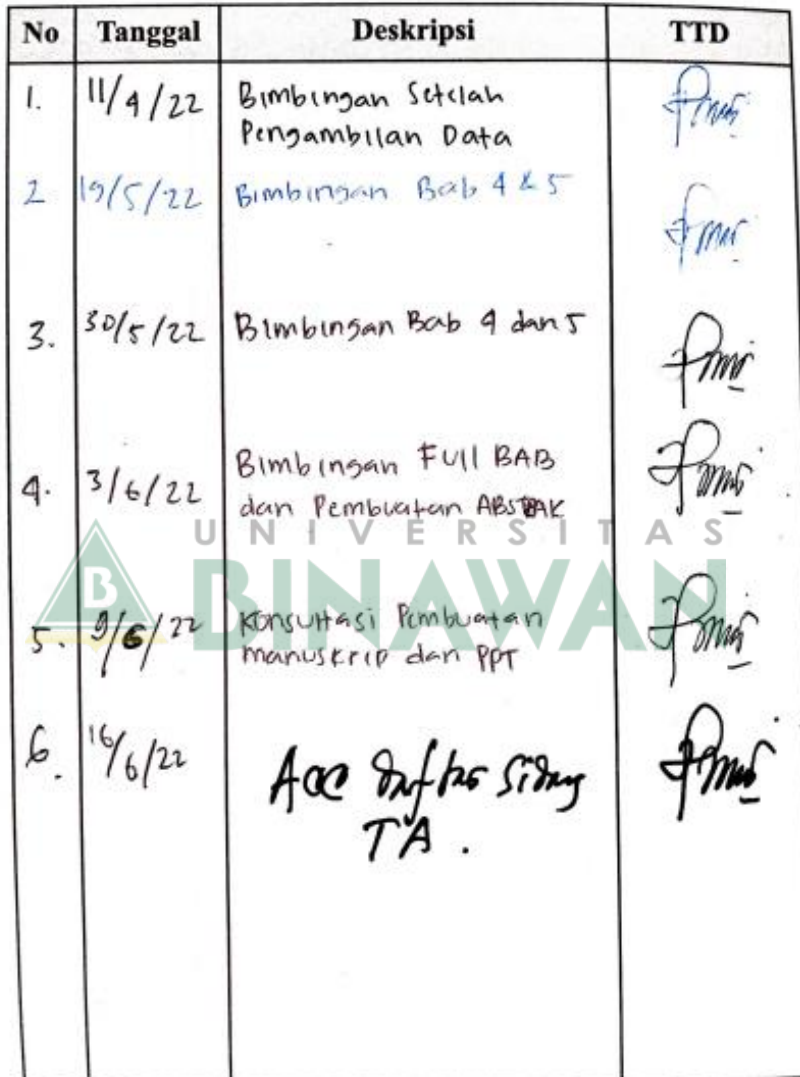 No Tanggal Deskripsi TTD
1. 11/4/22 Bimbingan Setelah
Pengambilan Data
2 19/5/22 Bimbingan Bab 4 & 5
3. 30/5/22 Bimbingan Bab 4 dan 5
4. 3/6/22 Bimbingan Full BAB
dan Pembuatan ABSTRAK
UNIVERSITAS
B BINAWAN
5. 9/6/22 Konsultasi Pembuatan
manuskrip dan PPT
6. 16/6/22 Acc daftar Sidang
TA.